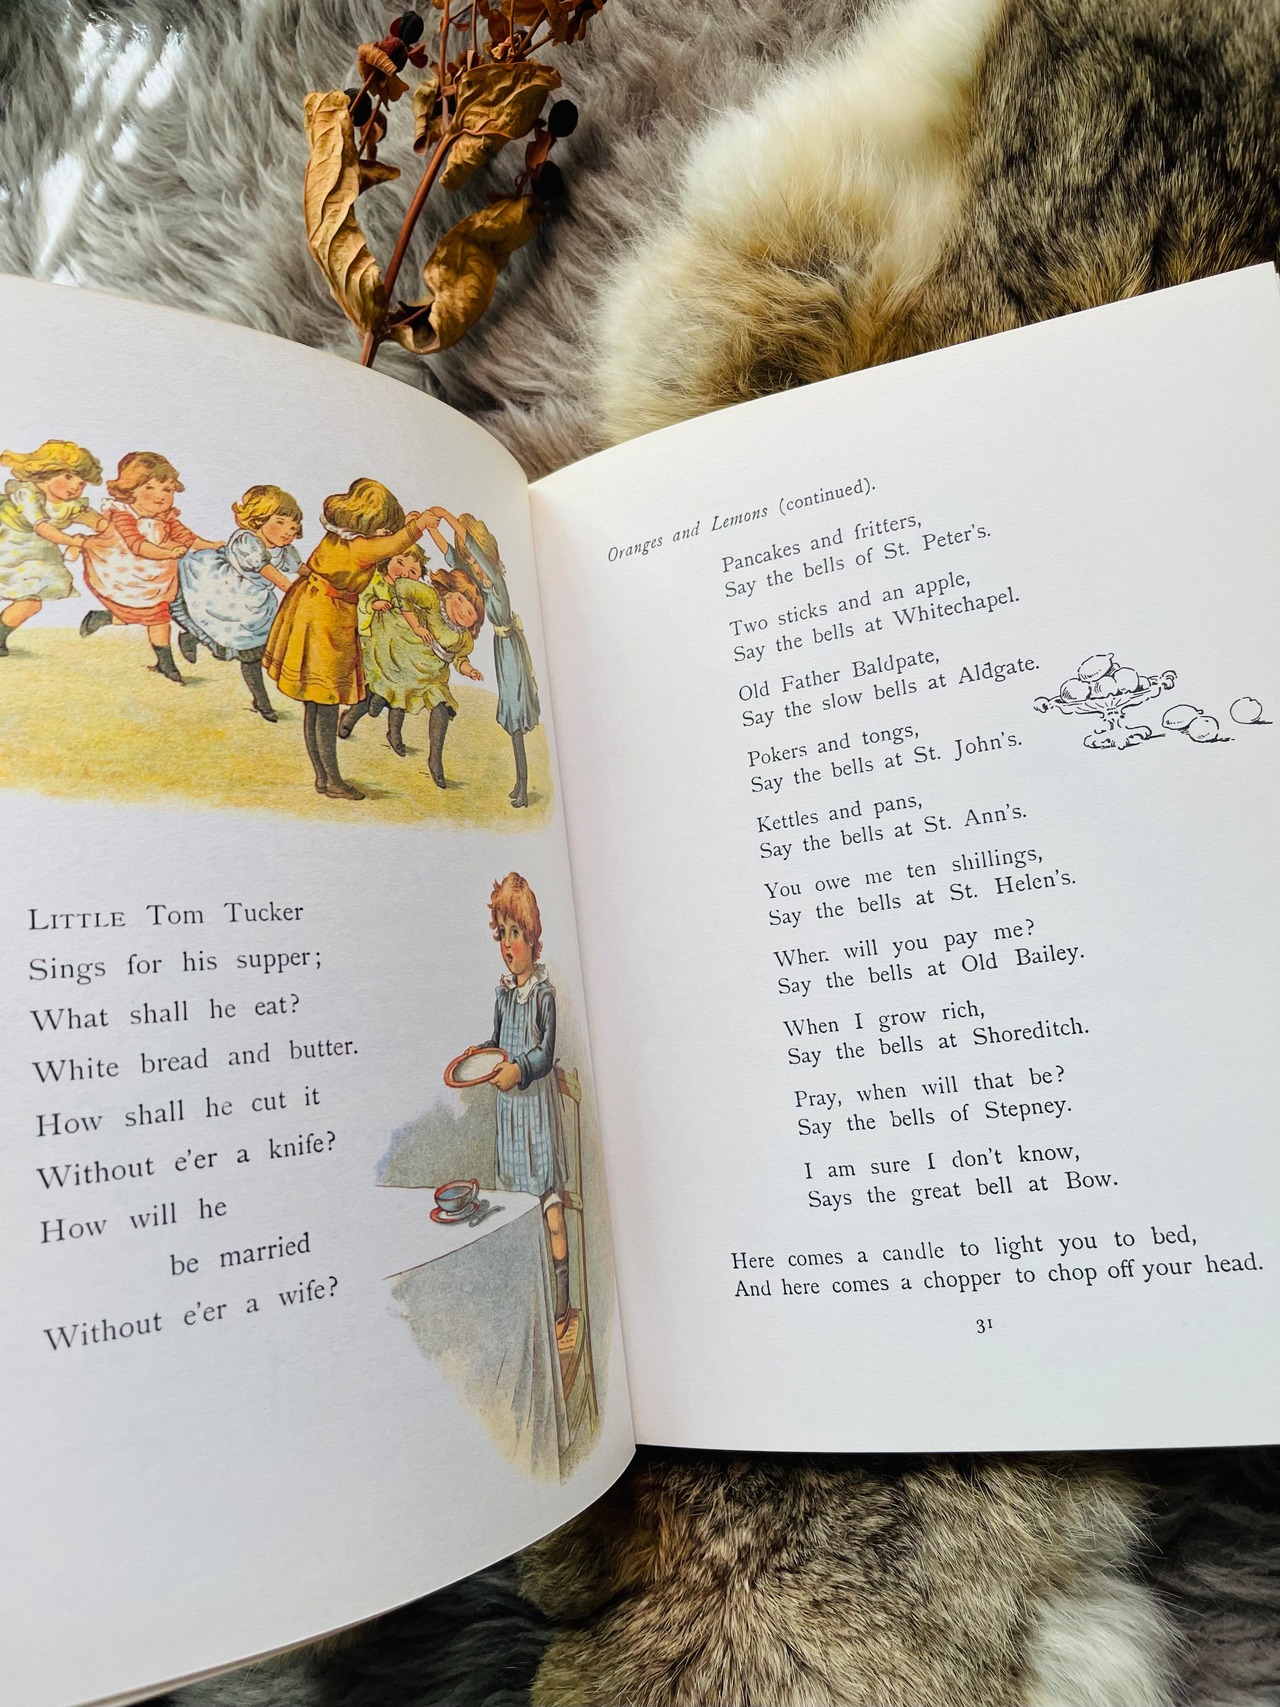 LITTLE Tom Tucker
Sings for his supper;
What shall he eat?
White bread and butter.
How shall he cut it
Without e'er a knife?
How will he
be married
Without e'er a wife?
Oranges and Lemons (continued).
Pancakes and fritters,
Say the bells of St. Peter's.
Two sticks and an apple,
Say the bells at Whitechapel.
Old Father Baldpate,
Say the slow bells at Aldgate.
Pokers and tongs,
Say the bells at St. John's.
Kettles and pans,
Say the bells at St. Ann's.
You owe me ten shillings,
Say the bells at St. Helen's.
When will you pay me?
Say the bells at Old Bailey.
When I grow rich,
Say the bells at Shoreditch.
Pray, when will that be?
Say the bells of Stepney.
I am sure I don't know,
Says the great bell at Bow.
Here comes a candle to light you to bed,
And here comes a chopper to chop off your head.
31